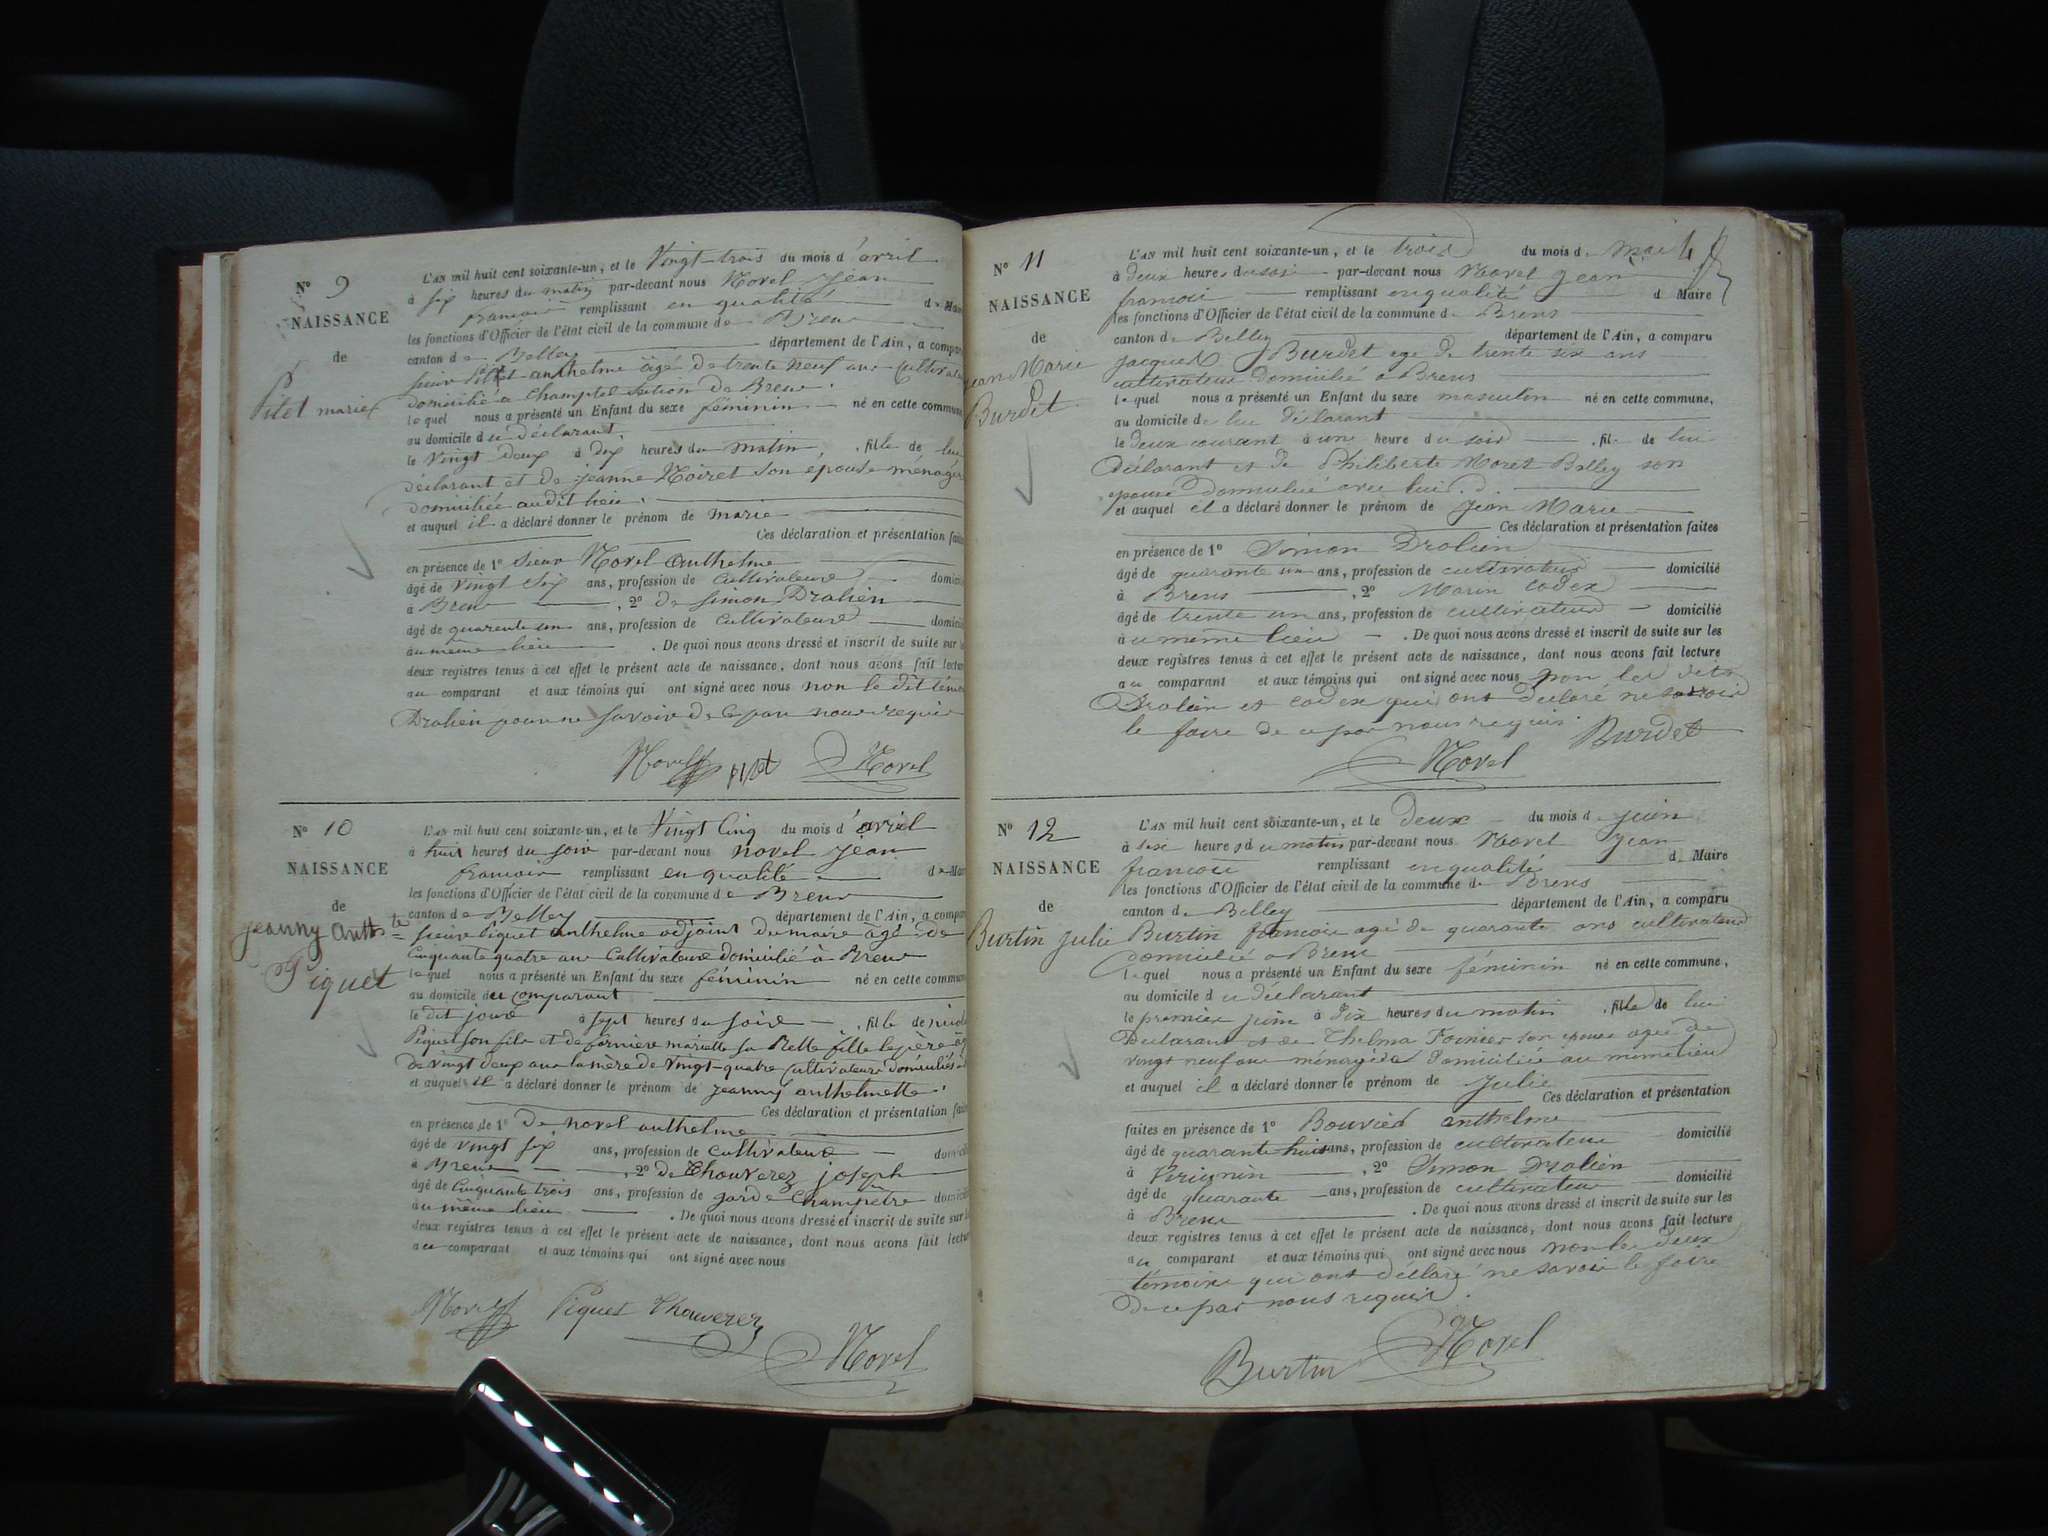 N° 9
NAISSANCE
de
Pilet marie
L'AN mil huit cent soixante-un, et le Vingt-trois du mois d'avril
à six heures du matin par-devant nous Morel Jean
francois remplissant en qualité de Maire
les fonctions d'Officier de l'état civil de la commune de Brens
canton de Belley département de l'Ain, a comparu
sieur Pilet anthelme agé de trente neuf ans Cultivateur
domicilié a Champtel section de Brens
lequel nous a présenté un Enfant du sexe féminin né en cette commune
au domicile du déclarant
le Vingt deux à dix heures du matin, fille de lui
déclarant et de jeanne Moiret son epouse ménagère
domiciliée audit lieu
et auquel il a déclaré donner le prénom de marie
Ces déclaration et présentation faites
en présence de 1° sieur Morel Anthelme
âgé de vingt six ans, profession de Cultivateur domicilié
à Brens, 2° de Simon Drolien
âgé de quarente un ans, profession de Cultivateur domicilié
au même lieu. De quoi nous avons dressé et inscrit de suite sur les
deux registres tenus à cet effet le présent acte de naissance, dont nous avons fait lecture
au comparant et aux témoins qui ont signé avec nous non le dit témoin
Drolien pour ne savoir de ce par nous requis
Morel pilet Morel
N° 10
NAISSANCE
de
jeanny anth te
Piquet
L'AN mil huit cent soixante-un, et le Vingt Cinq du mois d'avril
à huit heures du soir par-devant nous Morel Jean
francois remplissant en qualité de Maire
les fonctions d'Officier de l'état civil de la commune de Brens
canton de Belley département de l'Ain, a comparu
sieur Piquet anthelme adjoint du maire agé de
Cinquante quatre ans Cultivateur domicilié à Brens
lequel nous a présenté un Enfant du sexe féminin né en cette commune
au domicile du comparant
le dit jour à sept heures du soir, fille de
Piquet son fils et de mariette sa Belle fille le père
de vingt deux ans la mère de vingt-quatre Cultivateurs domiciliés
et auquel il a déclaré donner le prénom de jeanny anthelmette
Ces déclaration et présentation faites
en présence de 1° de morel anthelme
âgé de vingt six ans, profession de cultivateur domicilié
à Brens, 2° de Thouverez joseph
âgé de Cinquante trois ans, profession de garde Champetre domicilié
au même lieu. De quoi nous avons dressé et inscrit de suite sur les
deux registres tenus à cet effet le présent acte de naissance, dont nous avons fait lecture
au comparant et aux témoins qui ont signé avec nous
Morel Piquet Thouverez
Morel
N° 11
NAISSANCE
de
Jean Marie
Burdet
L'AN mil huit cent soixante-un, et le trois du mois de mai
à deux heures du soir par-devant nous Morel Jean
francois remplissant en qualité d Maire
les fonctions d'Officier de l'état civil de la commune de Brens
canton de Belley département de l'Ain, a comparu
jacques Burdet age de trente six ans
cultivateur domicilié a Brens
lequel nous a présenté un Enfant du sexe masculin né en cette commune,
au domicile de lui déclarant
le deux courant à une heure du soir, fils de lui
Déclarant et de Philiberte Moret Belley son
epouse domiciliée avec lui
et auquel il a déclaré donner le prénom de Jean Marie
Ces déclaration et présentation faites
en présence de 1° Simon Drolien
âgé de quarante un ans, profession de cultivateur domicilié
à Brens, 2° Marin Codex
âgé de trente un ans, profession de cultivateur domicilié
à u même lieu. De quoi nous avons dressé et inscrit de suite sur les
deux registres tenus à cet effet le présent acte de naissance, dont nous avons fait lecture
au comparant et aux témoins qui ont signé avec nous non les dits
Drolien et codex qui ont déclaré ne savoir
le faire de ce par nous requis. Burdet
Morel
N° 12
NAISSANCE
de
Burtin Julie
L'AN mil huit cent soixante-un, et le Deux du mois de juin
à six heures du matin par-devant nous Morel Jean
francois remplissant en qualité d Maire
les fonctions d'Officier de l'état civil de la commune de Brens
canton de Belley département de l'Ain, a comparu
Burtin francois agé de quarante ans cultivateur
domicilié a Brens
lequel nous a présenté un Enfant du sexe féminin né en cette commune,
au domicile du déclarant
le premier juin à dix heures du matin, fille de lui
Declarant et de Thelma Fornier son epouse agée de
vingt neuf ans ménagère domiciliée au meme lieu
et auquel il a déclaré donner le prénom de Julie
Ces déclaration et présentation
faites en présence de 1° Bouvier anthelme
âgé de quarante huit ans, profession de cultivateur domicilié
à Virignin, 2° Simon Drolien
âgé de quarante ans, profession de cultivateur domicilié
à Brens. De quoi nous avons dressé et inscrit de suite sur les
deux registres tenus à cet effet le présent acte de naissance, dont nous avons fait lecture
au comparant et aux témoins qui ont signé avec nous non les deux
témoins qui ont déclaré ne savoir le faire
de ce par nous requis.
Burtin Morel